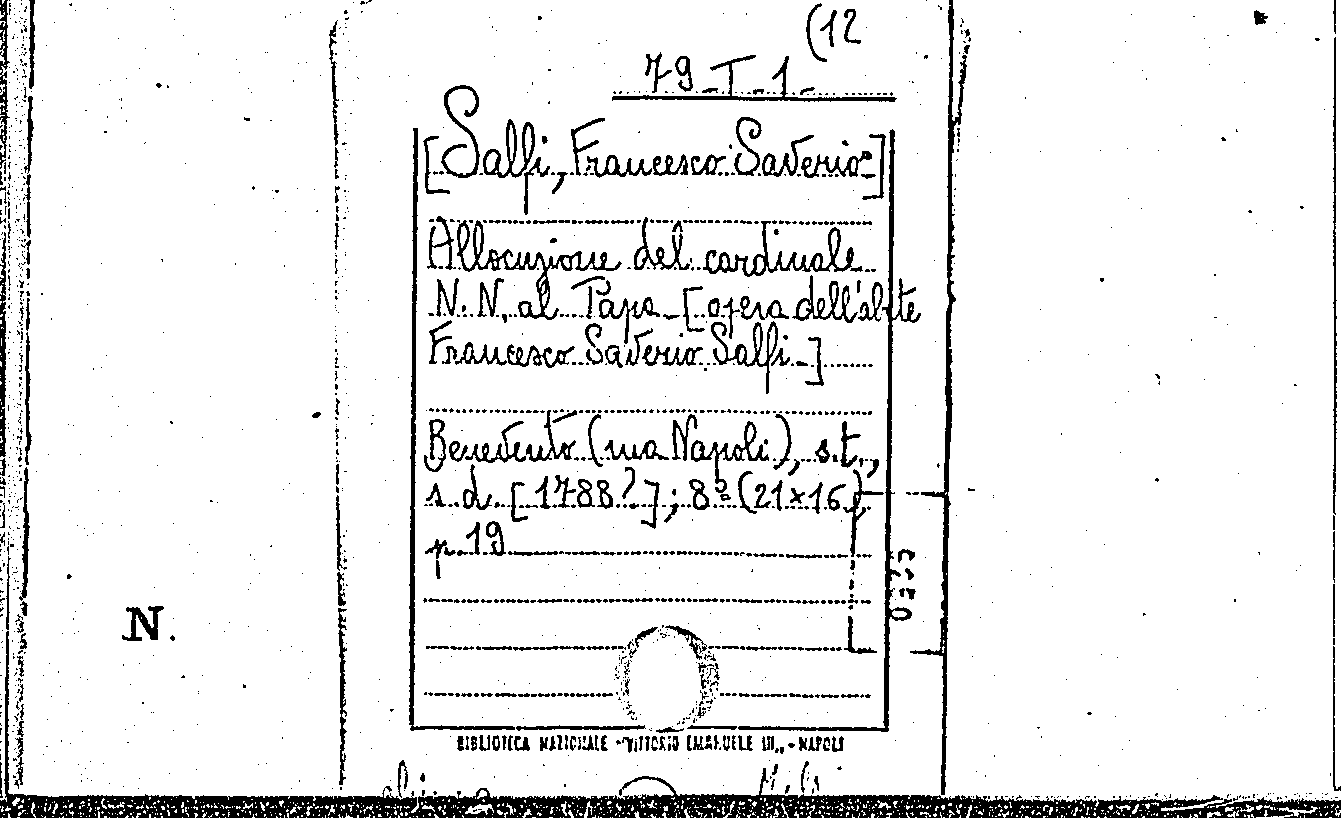 (12
79-T-1-
[Salfi, Francesco Saverio-]
Allocuzione del cardinale
N.N. al Papa - [opera dell'abate
Francesco Saverio Salfi -]
Benevento (ma Napoli), s.t.,
s.d. [1788?]; 8º (21x16),
p. 19
N.
BIBLIOTECA NAZIONALE - "VITTORIO EMANUELE III" - NAPOLI